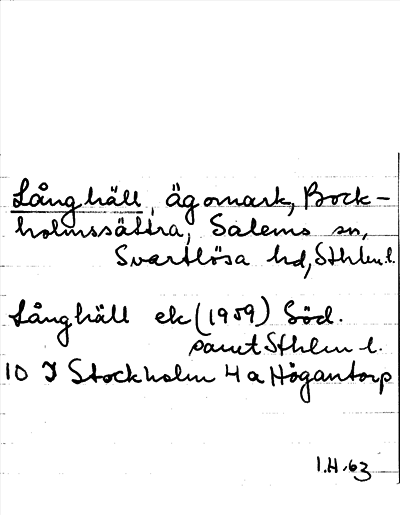 Långhäll, ägomark, Bock-
holmssättra, Salems sn,
Svartlösa hd, Sthlm l.
Långhäll ek (1959) Söd.
samt Sthlm l.
10 I Stockholm 4 a Högantorp
I.H. 63